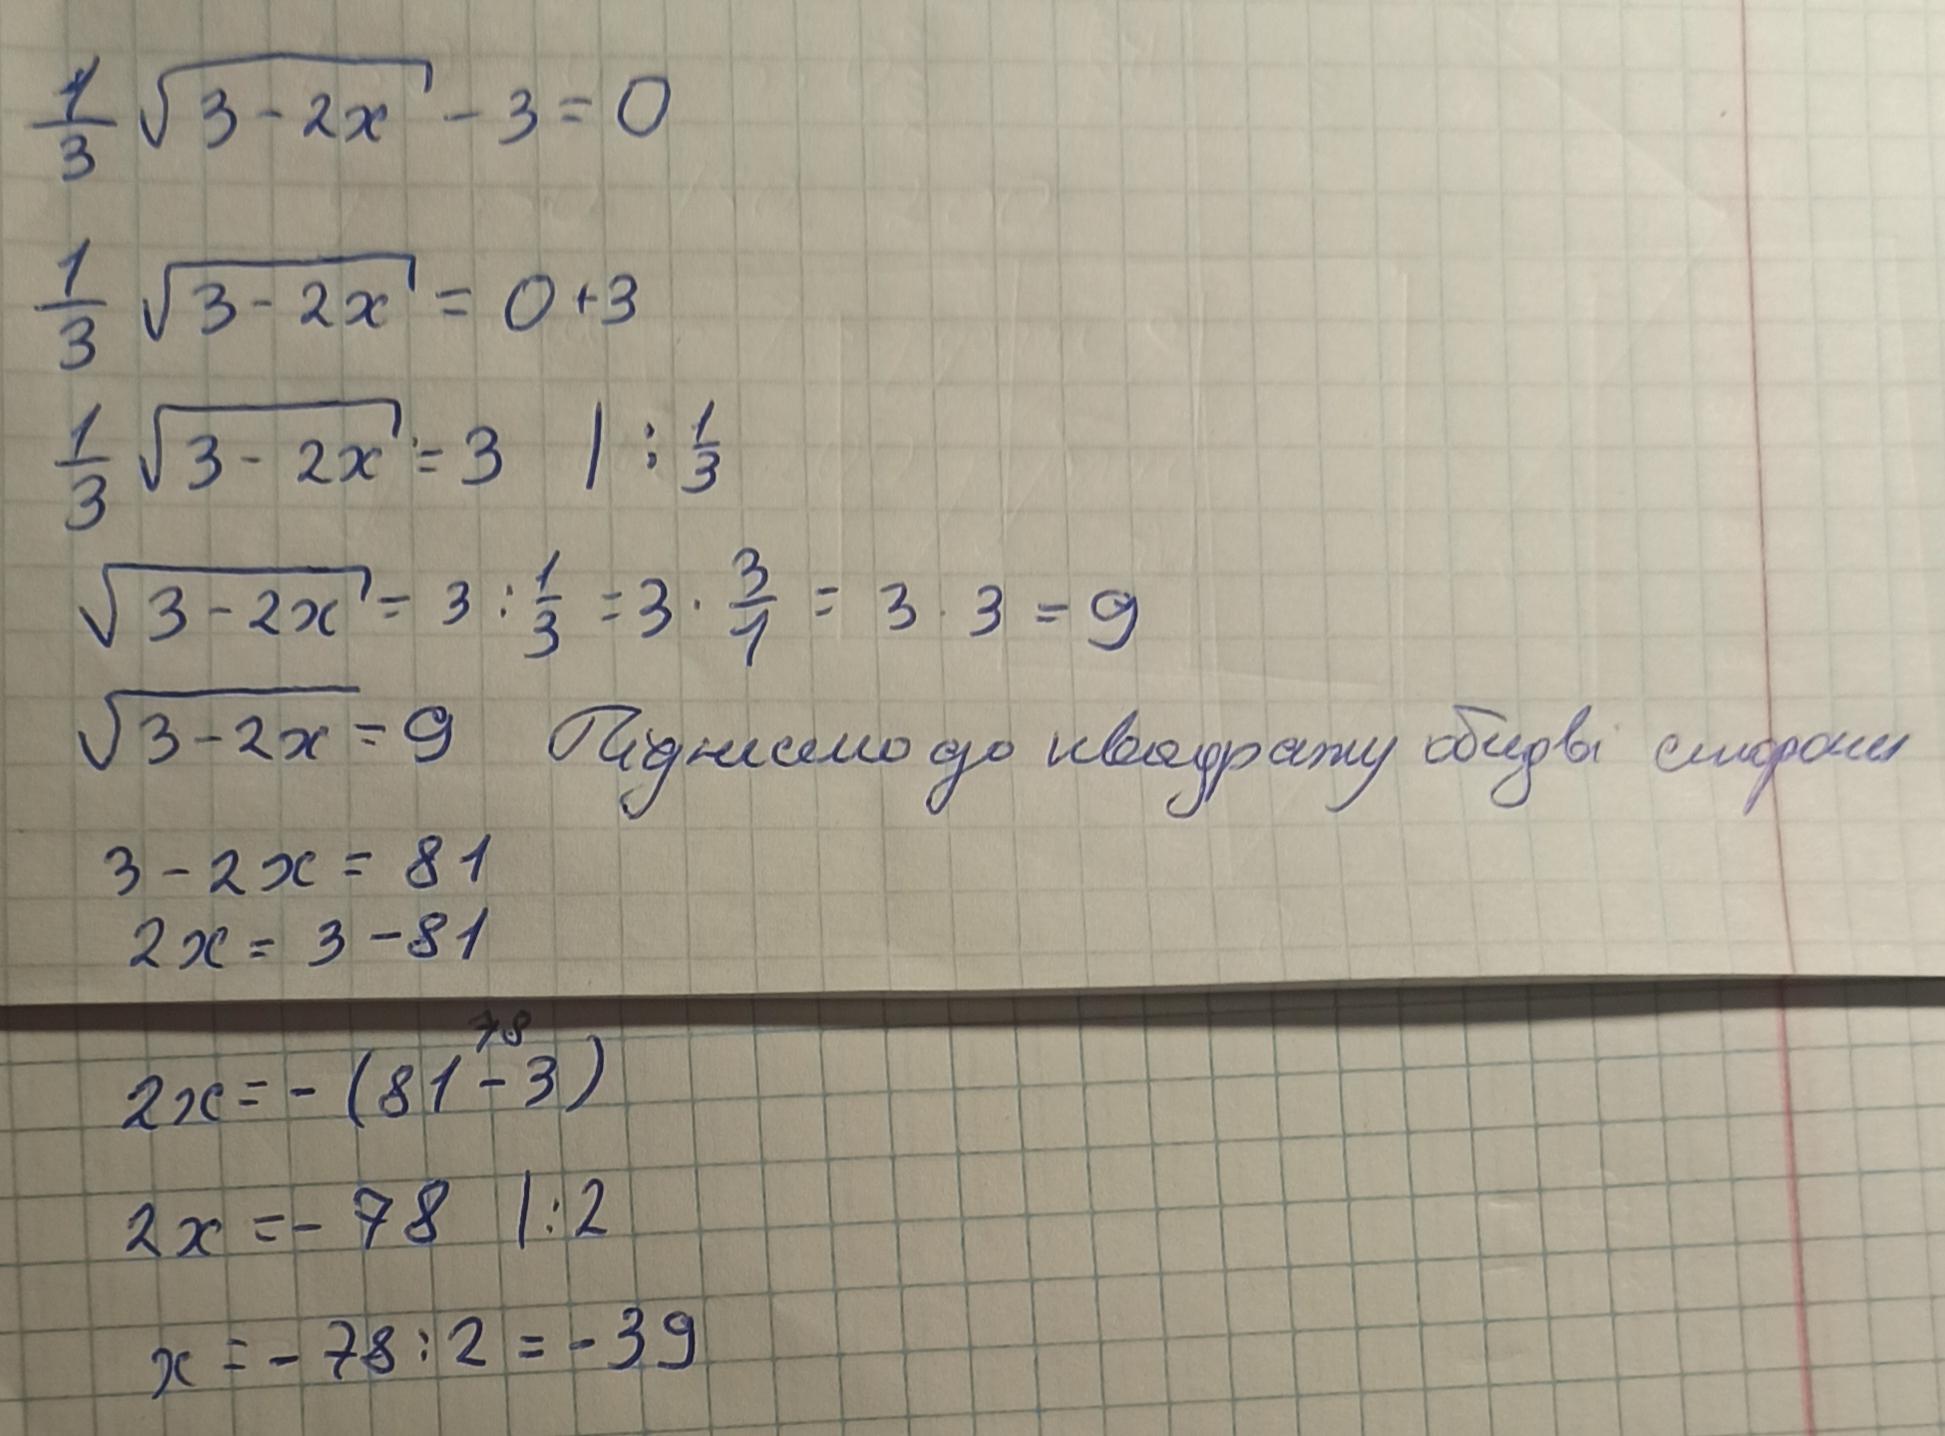 1/3 √(3 - 2x) - 3 = 0
1/3 √(3 - 2x) = 0 + 3
1/3 √(3 - 2x) = 3 | : 1/3
√(3 - 2x) = 3 : 1/3 = 3 · 3/1 = 3 · 3 = 9
√(3 - 2x) = 9 Піднесемо до квадрату обидві сторони
3 - 2x = 81
2x = 3 - 81
78
2x = - (81 - 3)
2x = - 78 | : 2
x = - 78 : 2 = - 39